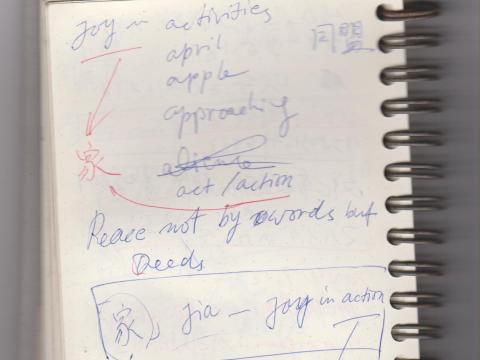 Joy in activities
april
同盟
apple
approaching
家
act/action
Peace not by words but
Deeds
家, jia — Joy in action